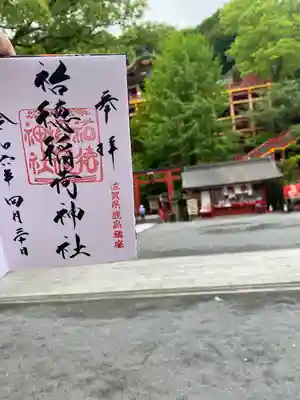 奉拝
佐賀県鹿島鎮座
祐徳稲荷神社
祐徳
神社
令和六年四月三十日